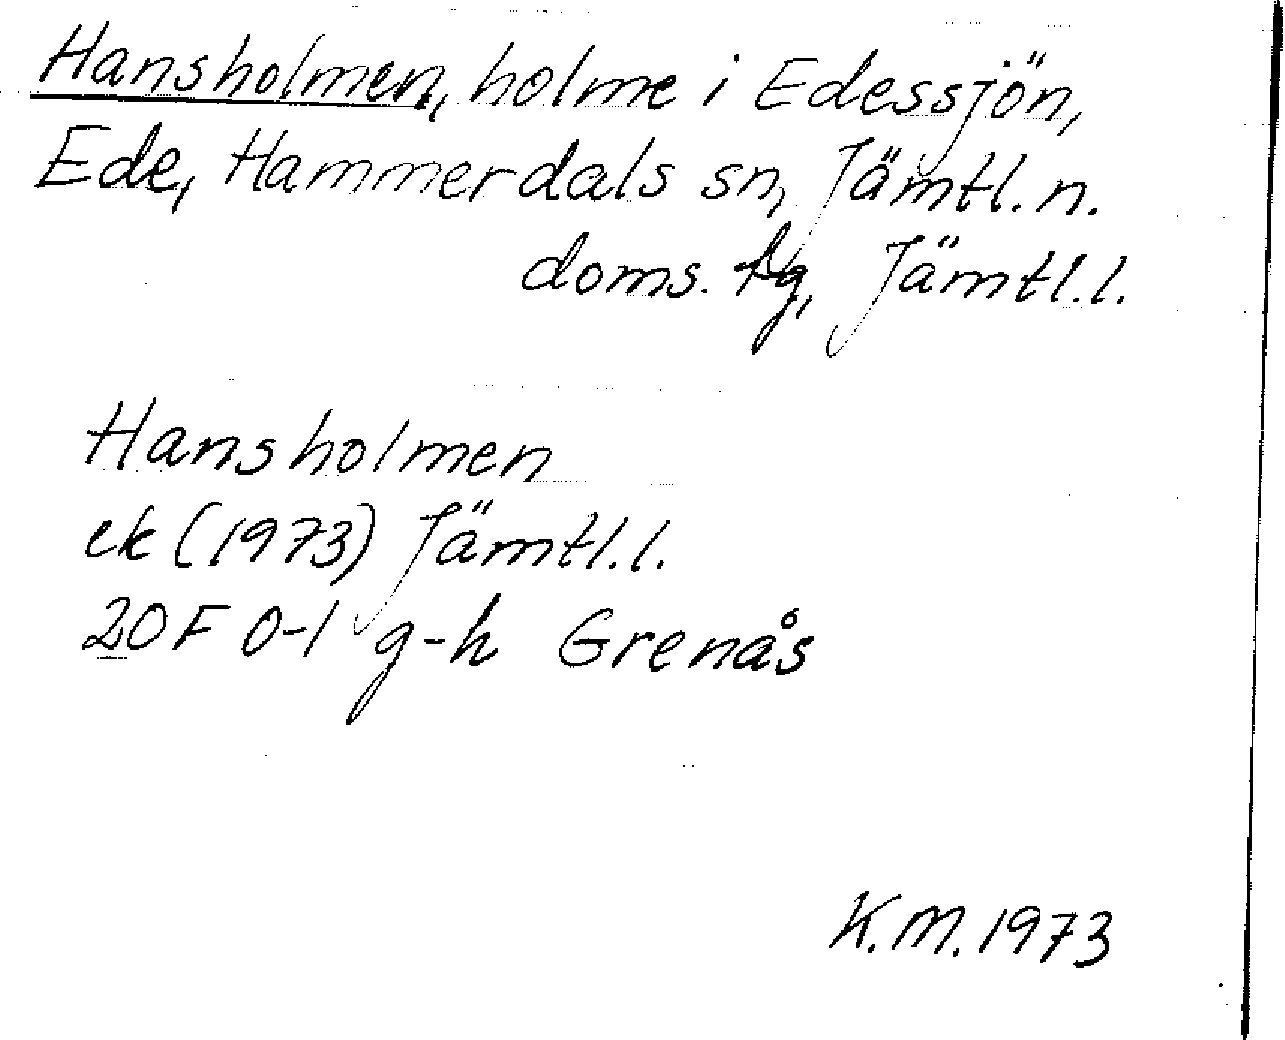 Hansholmen, holme i Edessjön,
Ede, Hammerdals sn, Jämtl. n.
doms. tg, Jämtl. l.
Hansholmen
ek (1973) Jämtl. l.
20F 0-1 g-h Grenås
K.M. 1973